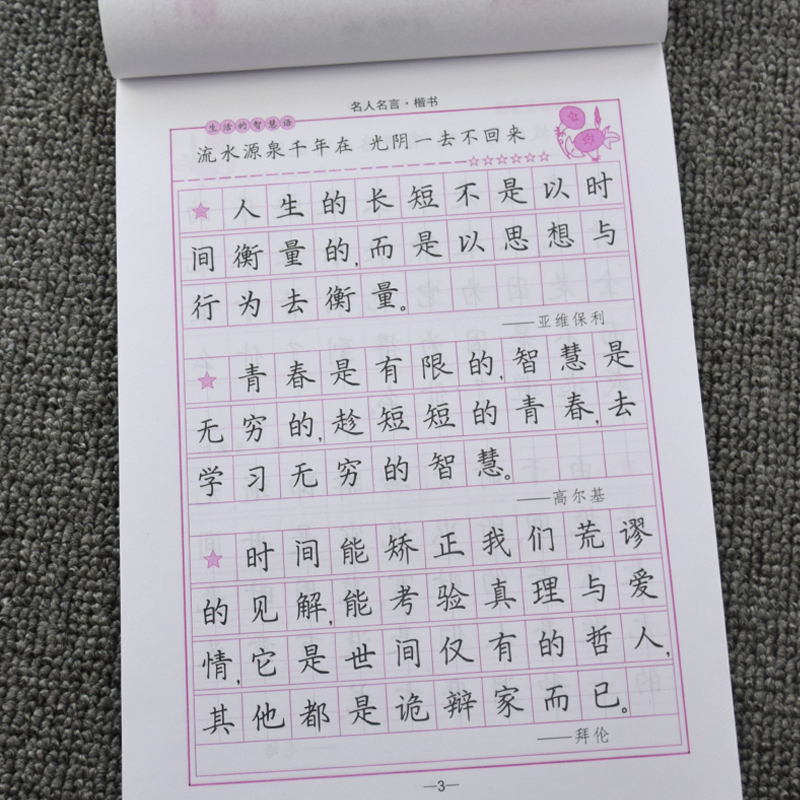 名人名言·楷书
生活的智慧语
流水源泉千年在 光阴一去不回来
人生的长短不是以时
间衡量的,而是以思想与
行为去衡量。
——亚维保利
青春是有限的,智慧是
无穷的,趁短短的青春,去
学习无穷的智慧。
——高尔基
时间能矫正我们荒谬
的见解,能考验真理与爱
情,它是世间仅有的哲人,
其他都是诡辩家而已。
——拜伦
—3—